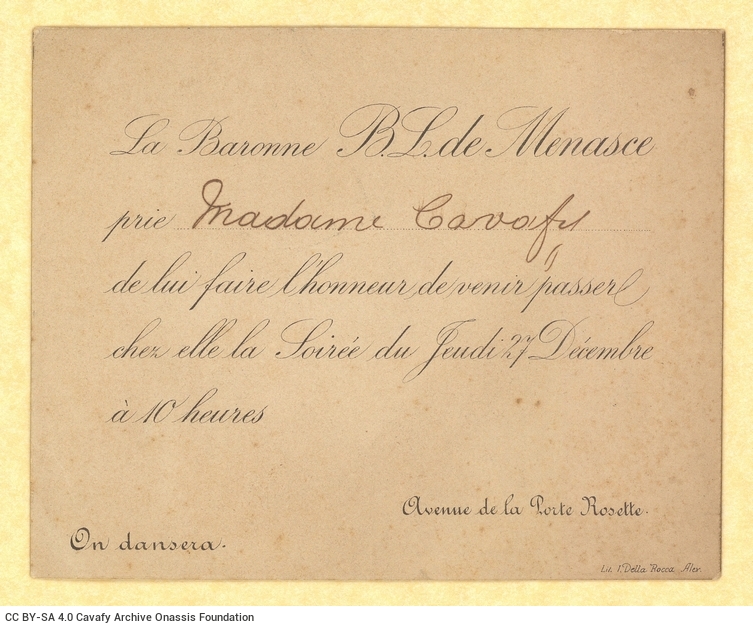 La Baronne B. L. de Menasce
prie Madame Cavafy
de lui faire l'honneur de venir passer
chez elle la Soirée du Jeudi 27 Décembre
à 10 heures
Avenue de la Porte Rosette.
On dansera.
Lit. I. Della Rocca Alex.
CC BY-SA 4.0 Cavafy Archive Onassis Foundation